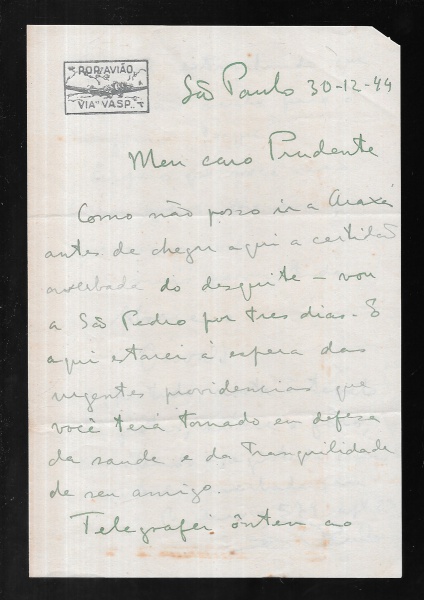 POR AVIÃO
VIA "VASP"
São Paulo 30-12-44
Meu caro Prudente
Como não posso ir a Araxá
antes de chegar aqui a certidão
averbada do desquite - vou
a São Pedro por tres dias. E
aqui estarei à espera das
urgentes providencias que
você terá tomado em defesa
da saude e da tranquilidade
de seu amigo.
Telegrafei ônten ao